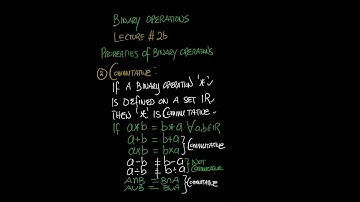 BINARY OPERATIONS
LECTURE # 2b
PROPERTIES OF BINARY OPERATIONS
② COMMUTATIVE:
IF A BINARY OPERATION '*'
IS DEFINED ON A SET IR
THEN '*' IS COMMUTATIVE
IF a*b = b*a ∀ a,b ∈ IR
a+b = b+a } COMMUTATIVE
axb = bxa
a-b ≠ b-a } NOT
a÷b ≠ b÷a COMMUTATIVE
A∩B = B∩A } COMMUTATIVE
A∪B = B∪A